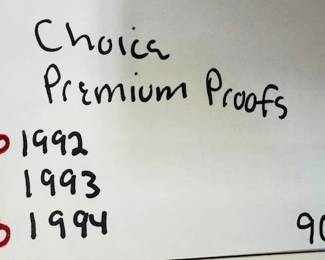 Choice
Premium Proofs
1992
1993
1994